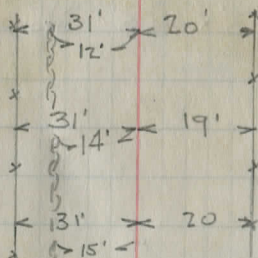 31' 20'
12'
31' 19'
14'
31' 20
15'